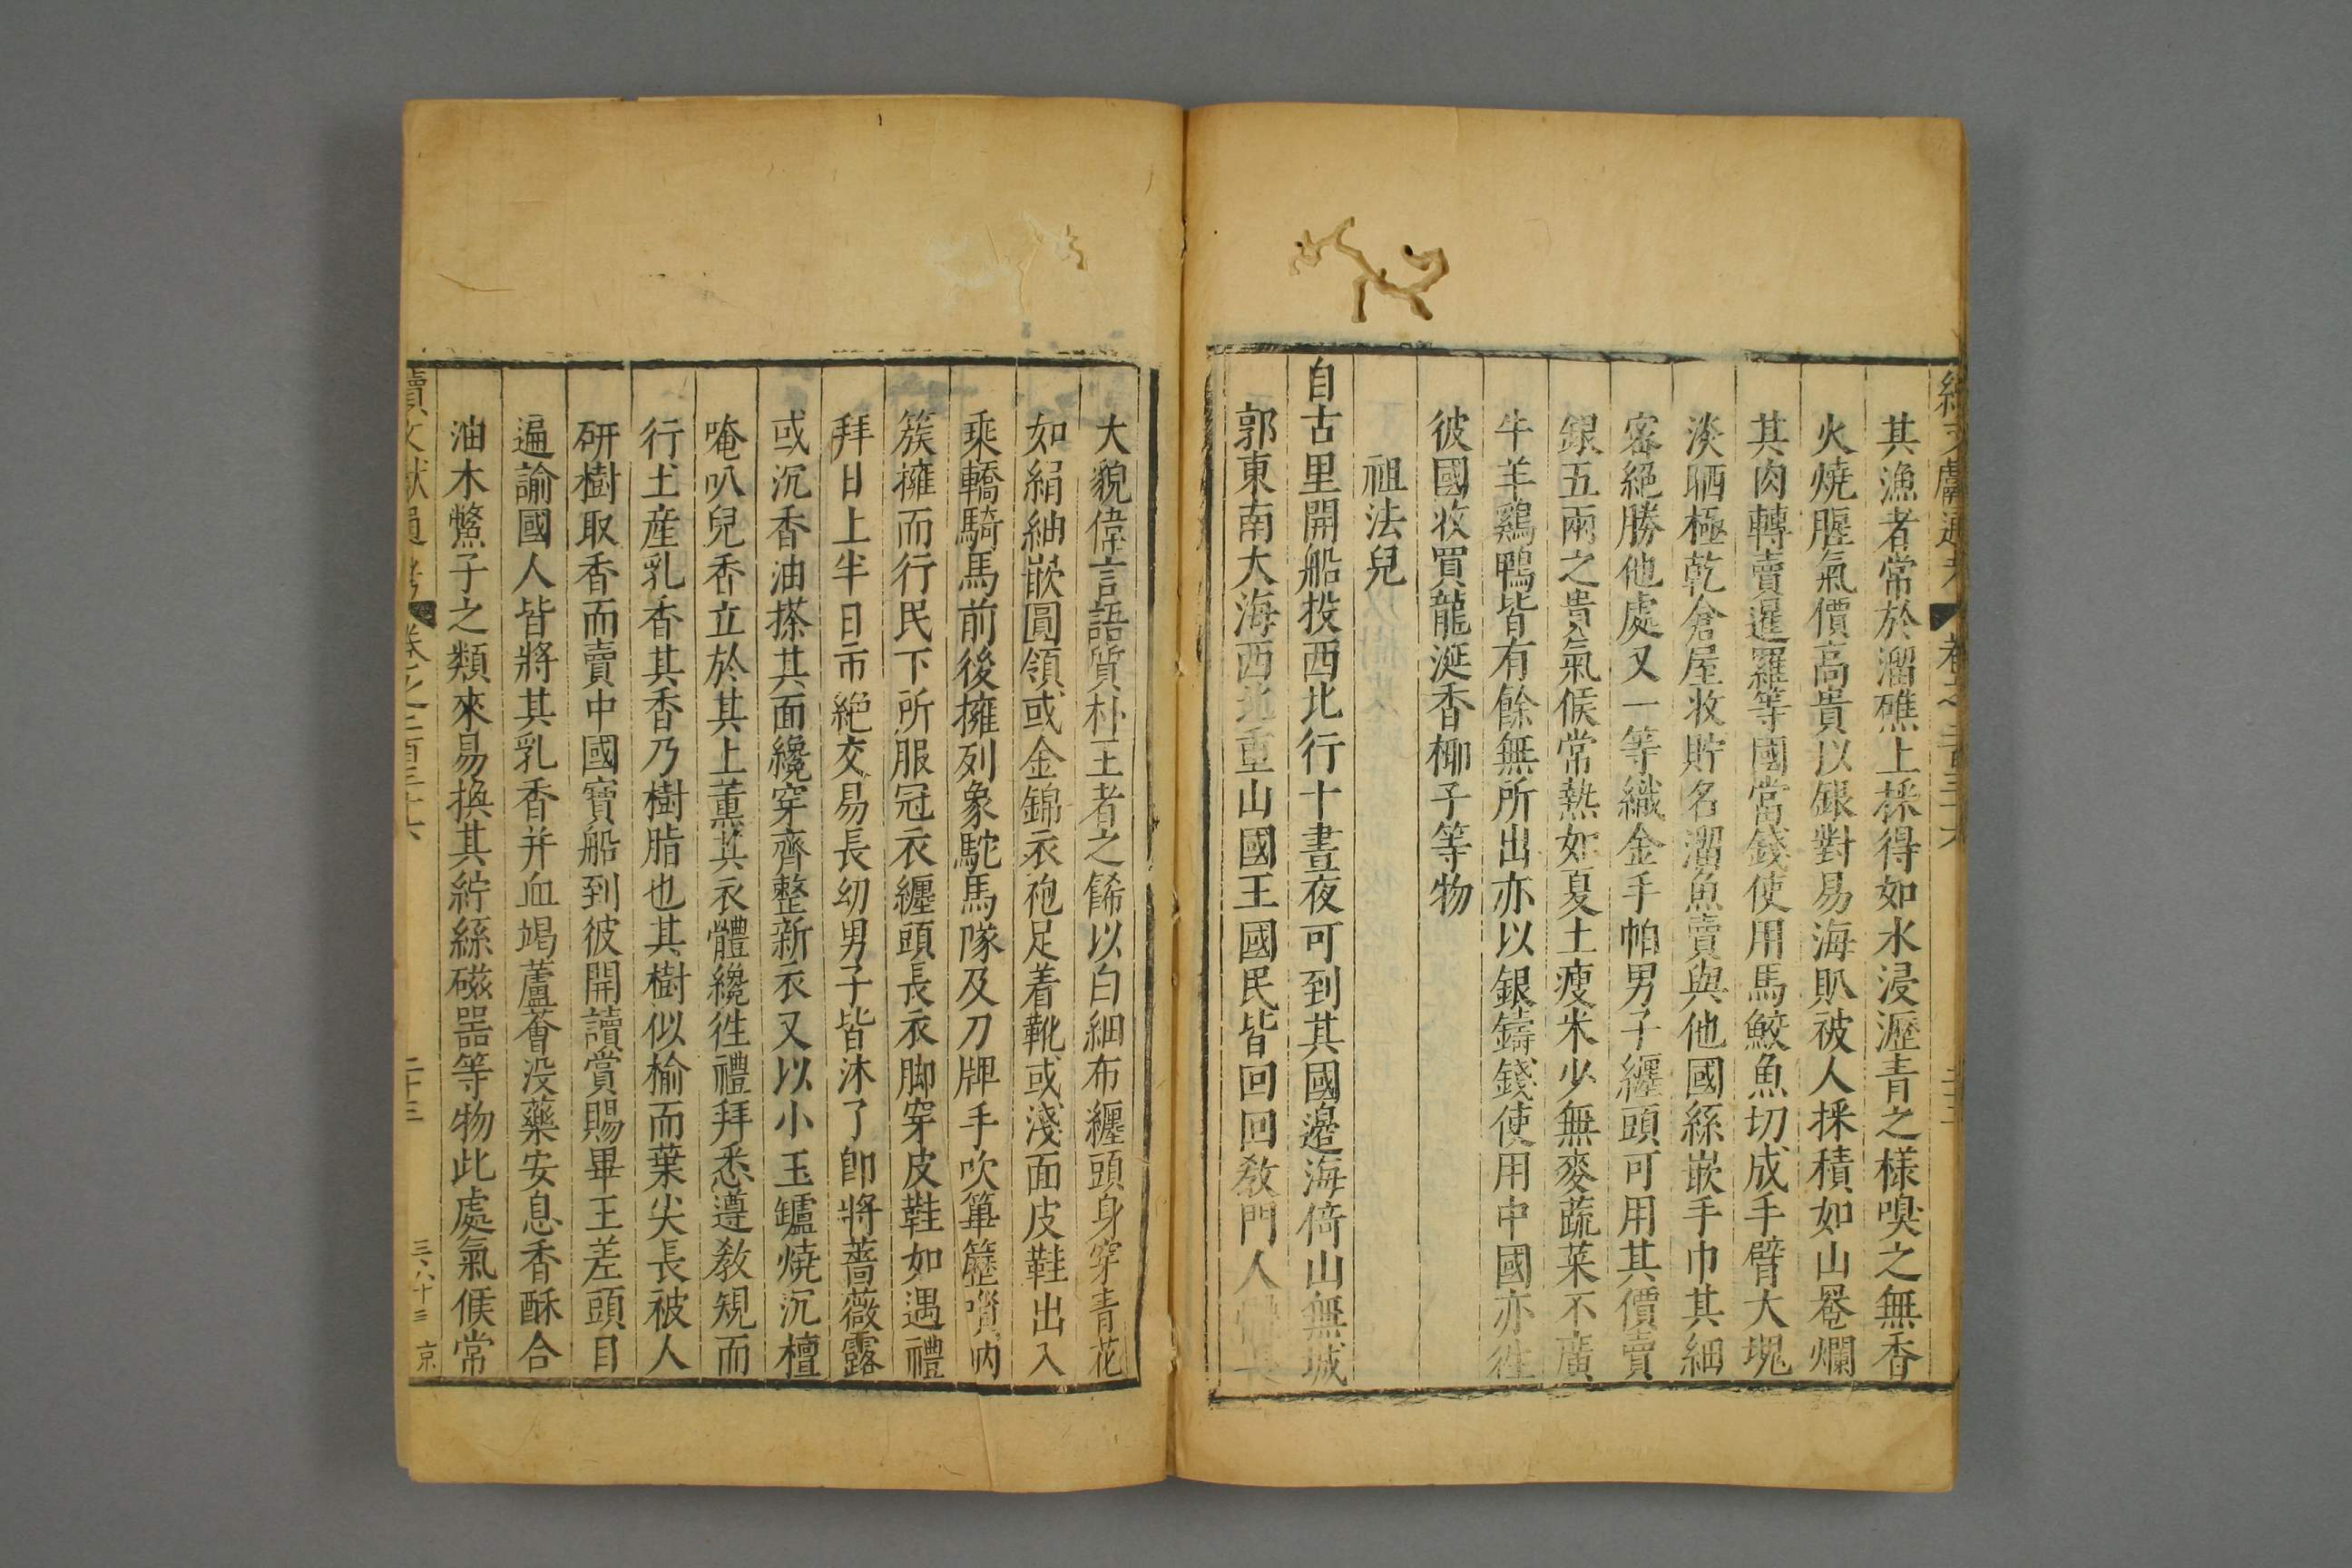 續文獻通考 卷之二百三十六
其漁者常於溜礁上採得如水浸瀝青之樣嗅之無香
火燒腥氣價高貴以銀對易海䝤被人採積如山罨爛
其肉轉賣暹羅等國當錢使用馬鮫魚切成手臂大塊
淡晒極乾倉屋收貯名溜魚賣與他國絲嵌手巾其細
密絕勝他處又一等織金手帕男子纏頭可用其價賣
銀五兩之貴氣候常熱如夏土瘦米少無麥蔬菜不廣
牛羊鷄鴨皆有餘無所出亦以銀鑄錢使用中國亦徃
彼國收買龍涎香椰子等物
祖法兒
自古里開船投西北行十晝夜可到其國邊海倚山無城
郭東南大海西北重山國王國民皆回回敎門人
大貌偉言語質朴王者之餙以白細布纏頭身穿青花
如絹紬嵌圓領或金錦衣袍足着靴或淺面皮鞋出入
乘轎騎馬前後擁列象駝馬隊及刀牌手吹篳篥嗩吶
簇擁而行民下所服冠衣纏頭長衣脚穿皮鞋如遇禮
拜日上半日市絕交易長幼男子皆沐了卽將薔薇露
或沉香油搽其面纔穿齊整新衣又以小玉鑪燒沉檀
唵叭兒香立於其上薰其衣體纔徃禮拜悉遵敎規而
行土產乳香其香乃樹脂也其樹似榆而葉尖長被人
研樹取香而賣中國寶船到彼開讀賞賜畢王差頭目
遍諭國人皆將其乳香幷血竭蘆薈没藥安息香酥合
油木鱉子之類來易換其紵絲磁器等物此處氣候常
續文獻通考 卷之二百三十六 二十三 三八十三 京